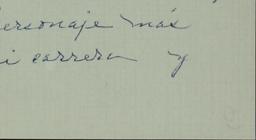 ersonaje más
i carrera y